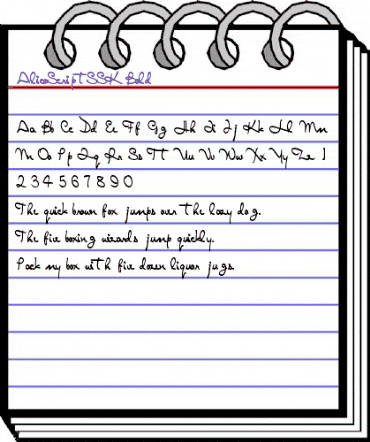 AliceScriptSSK Bold
Aa Bb Cc Dd Ee Ff Gg Hh Ii Jj Kk Ll Mm
Nn Oo Pp Qq Rr Ss Tt Uu Vv Ww Xx Yy Zz 1
2 3 4 5 6 7 8 9 0
The quick brown fox jumps over the lazy dog.
The five boxing wizards jump quickly.
Pack my box with five dozen liquor jugs.